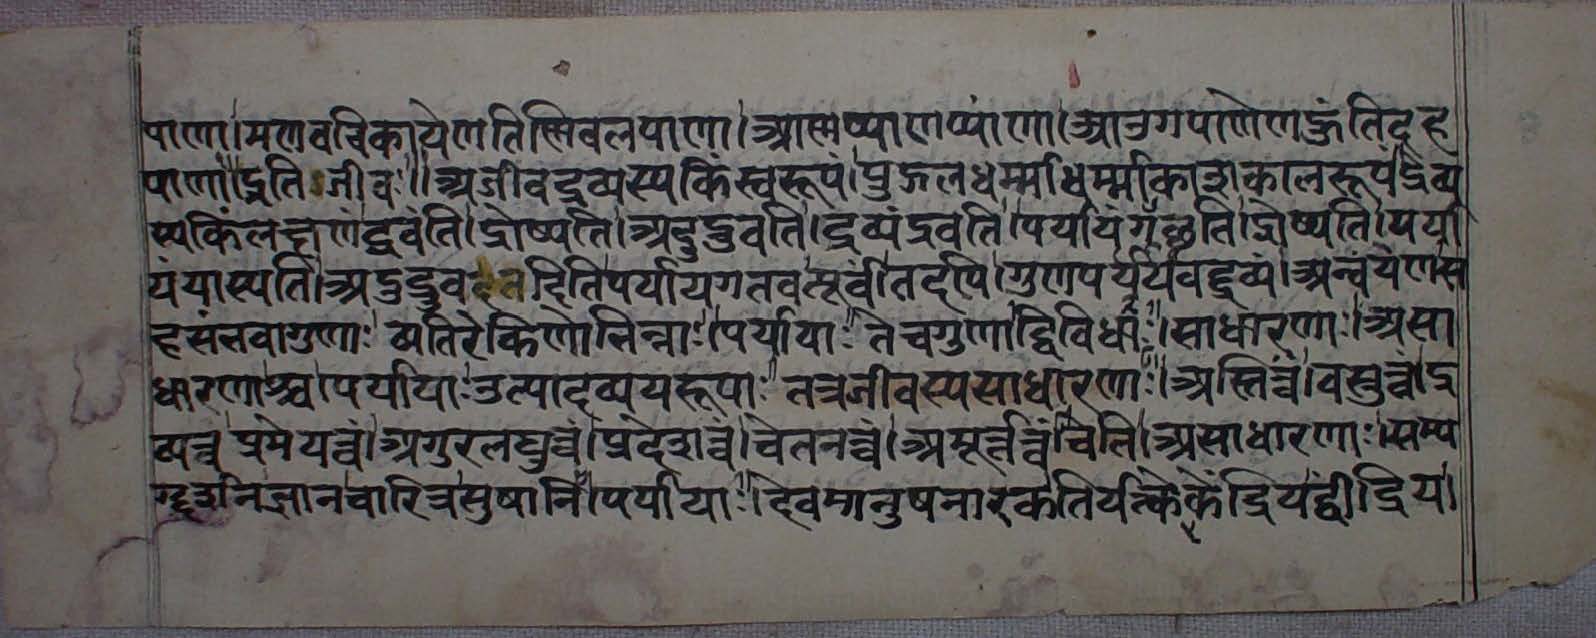 पाणा।मणवचिकायेणतिन्निवलपाणा।आणप्पाणप्पाणा।आउगपाणेणहुंतिदह
पाणा॥इति जीवः॥अजीवद्रव्यस्यकिंस्वरूपं।पुद्गलधर्म्माधर्म्माकाशकालरूपं।द्रव्य
स्यकिंलक्षणं।द्रवंति।द्रोष्यति।अदुद्रुवति।द्रव्यंद्रवति।पर्यायंगछति।द्रोष्यति।पर्या
यंयास्यति।अदुद्रुव दितिपर्यायगतवत्पूर्वंतदपि।गुणपर्ययवद्द्रव्यं।अन्वयेणस
हसंभवागुणाः व्यतिरेकिणोभिन्नाः।पर्यायाः तेचगुणाद्विविधाः॥साधारणाः।असा
धारणाश्च।पर्यायाःउत्पादव्ययरूपाः तत्रजीवस्यसाधारणाः॥अस्तित्वं।वस्तुत्वं।द्र
व्यत्वं प्रमेयत्वं।अगुरलघुत्वं।प्रदेशत्वं।चेतनत्वं।अमूर्त्तत्वंचेति।असाधारणाः।सम्य
ग्दर्शनज्ञानचारित्रसुषानि।पर्यायाः॥देवमानुषनारकतिर्यत्केकेंद्रियद्वींद्रिय।